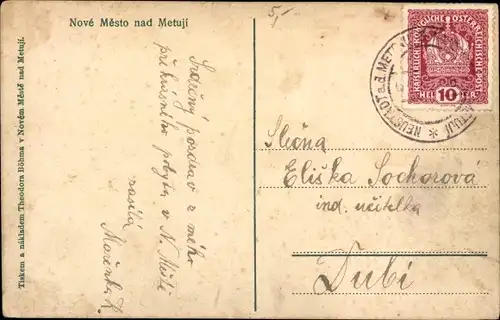 Nové Město nad Metují
5,-
Tiskem a nákladem Theodora Böhma v Novém Městě nad Metují.
Srdečný pozdrav z mého
překrásného pobytu v N. Městě
zasílá
Mařenka K.
KAISERLICHE KÖNIGLICHE ÖSTERREICHISCHE POST
10
HELLER
NEUSTADT a.d. METTAU
Slečna
Eliška Sochorová
ind. učitelka
Dubí